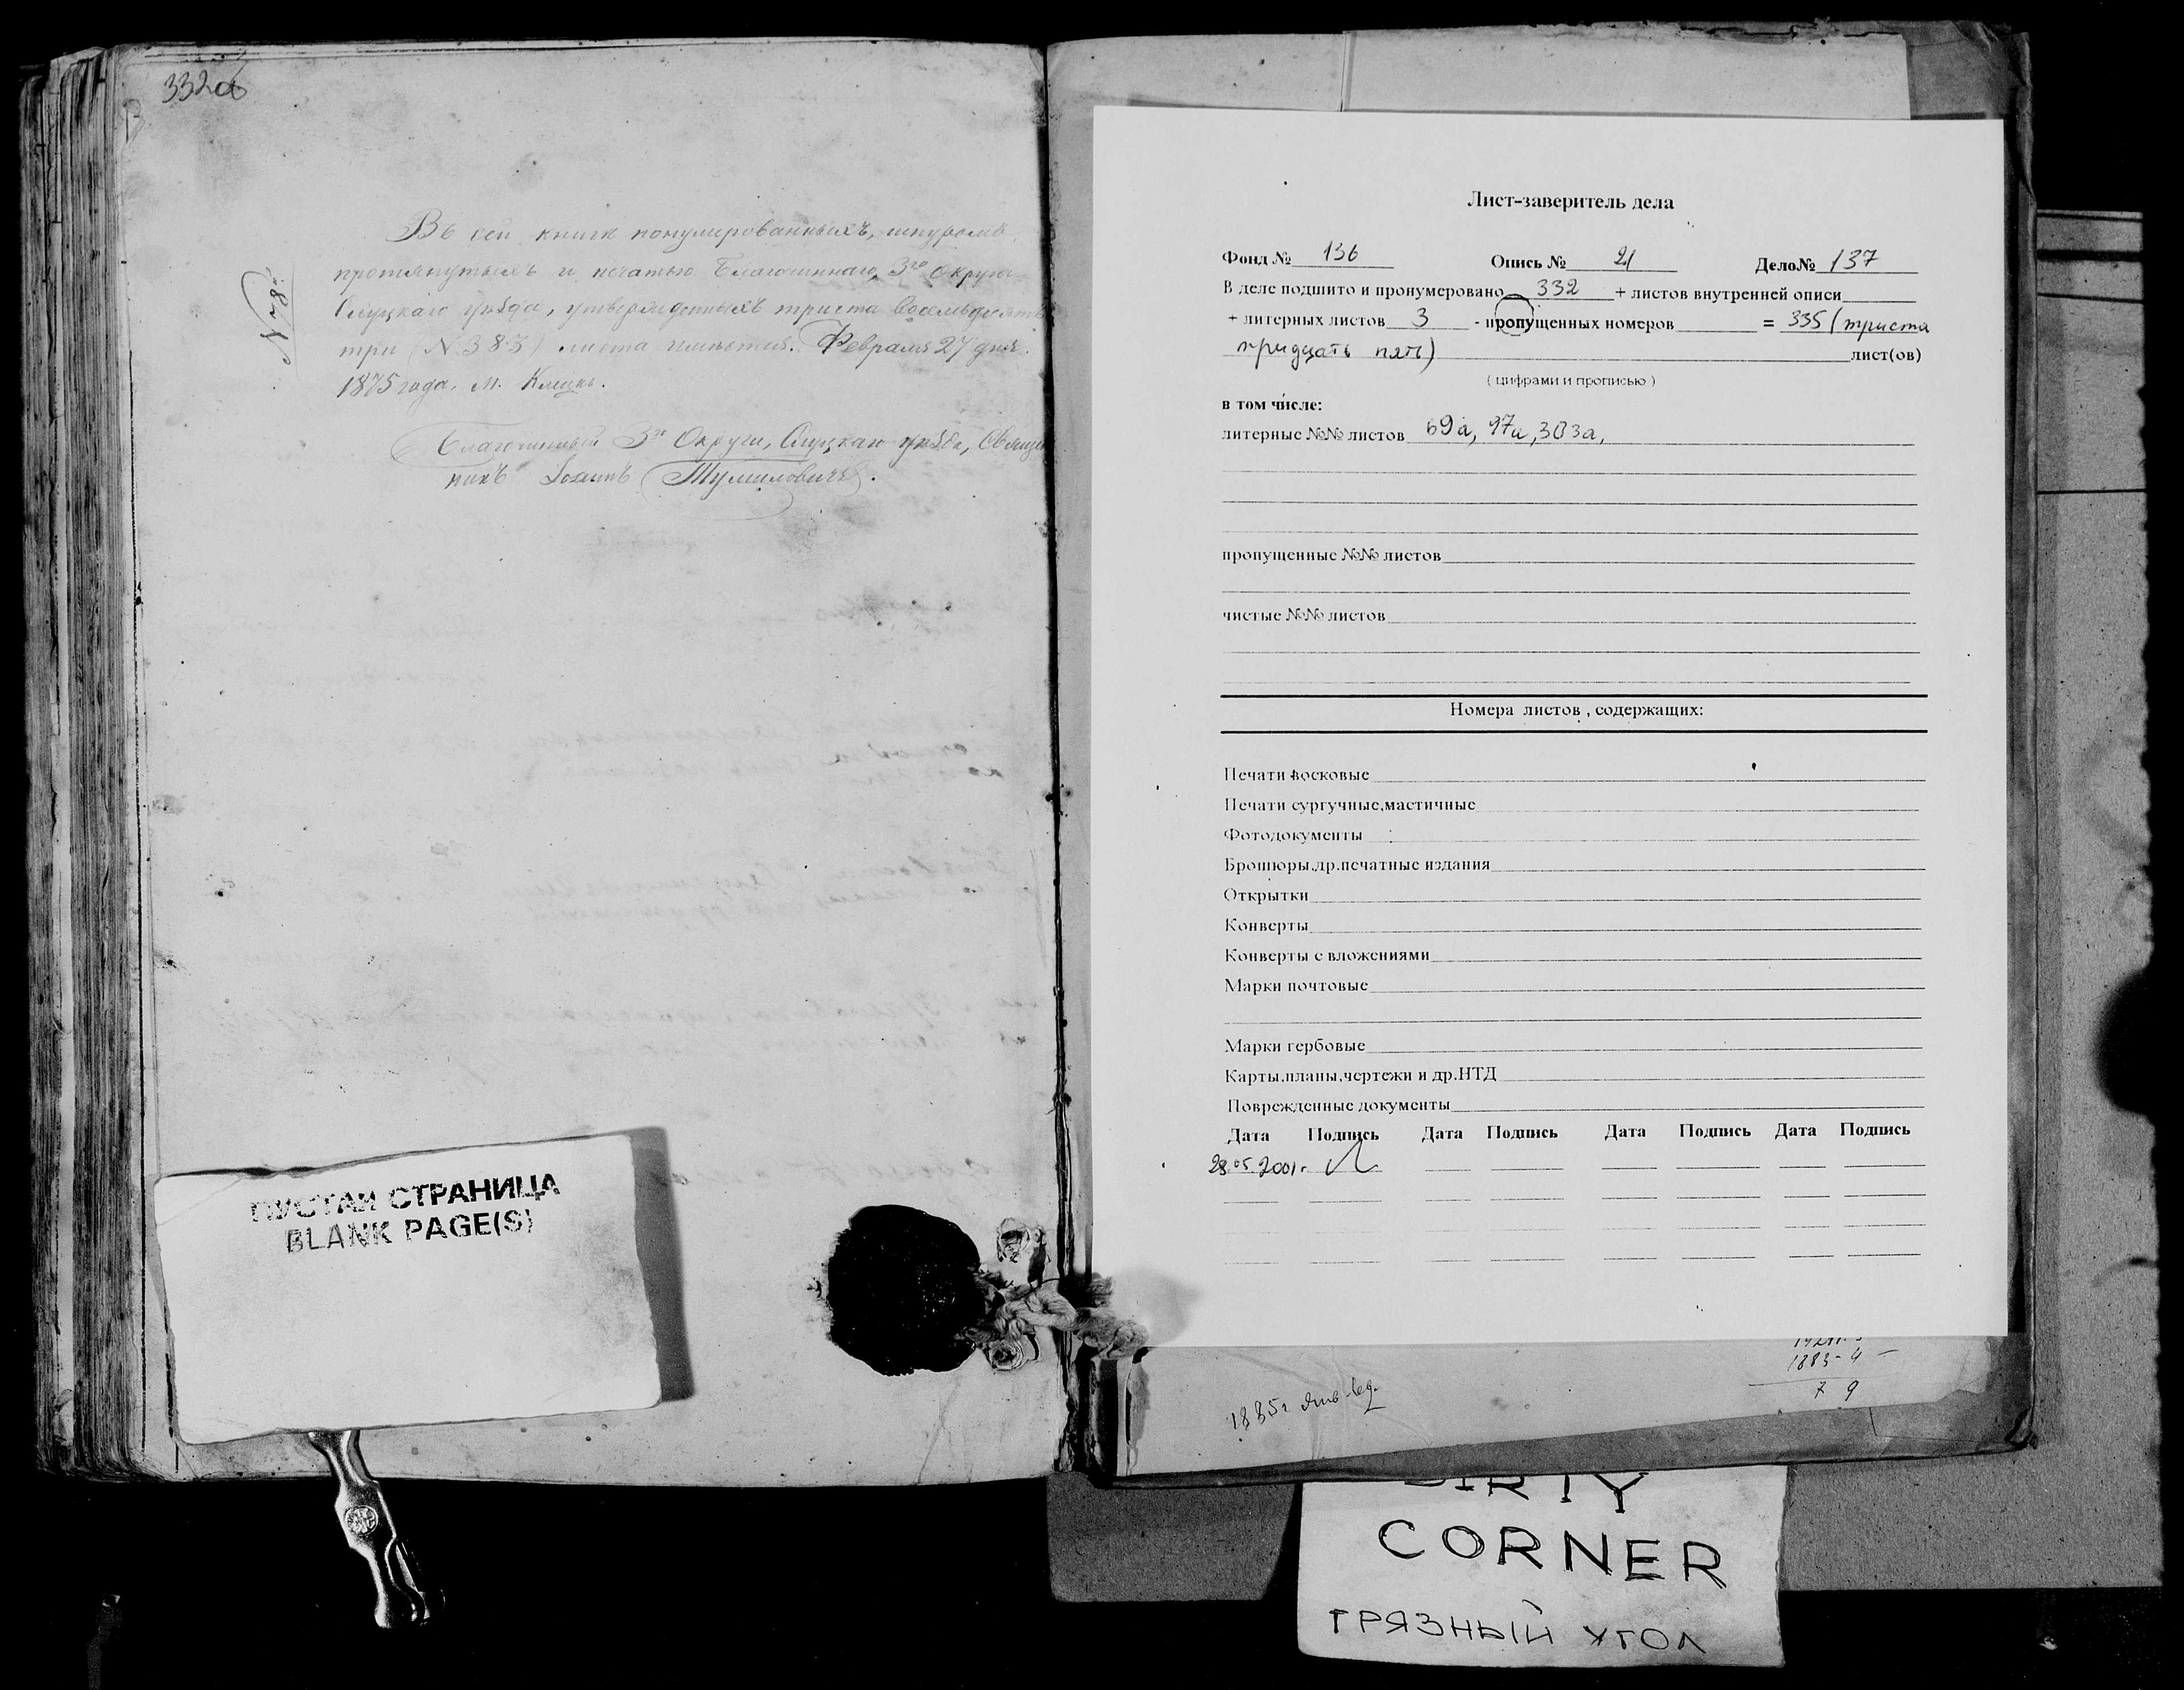 332об
N 78.
Въ сей книгѣ понумерованныхъ, шнуромъ
протянутыхъ и печатью Благочиннаго 3го Округа
Слуцкаго уѣзда, утвержденныхъ триста восемьдесятъ
три (N 383) листа имѣется. Февраля 27 дня.
1875 года. М. Клецкъ.
Благочинный 3го Округа, Слуцкаго уѣзда, Священ
никъ Іоаннъ Тумиловичъ.
ПУСТАЯ СТРАНИЦА
BLANK PAGE(S)
Лист-заверитель дела
Фонд № 136 Опись № 21 Дело№ 137
В деле подшито и пронумеровано 332 + листов внутренней описи
+ литерных листов 3 - пропущенных номеров = 335 (триста
тридцать пять) лист(ов)
( цифрами и прописью )
в том числе:
литерные №№ листов 69а, 97а, 303а,
пропущенные №№ листов
чистые №№ листов
Номера листов , содержащих:
Печати восковые
Печати сургучные,мастичные
Фотодокументы
Брошюры,др.печатные издания
Открытки
Конверты
Конверты с вложениями
Марки почтовые
Марки гербовые
Карты,планы,чертежи и др.НТД
Поврежденные документы
Дата Подпись Дата Подпись Дата Подпись Дата Подпись
28.05.2001г.
1883- 4
7 9
1885г
DIRTY
CORNER
ГРЯЗНЫЙ УГОЛ